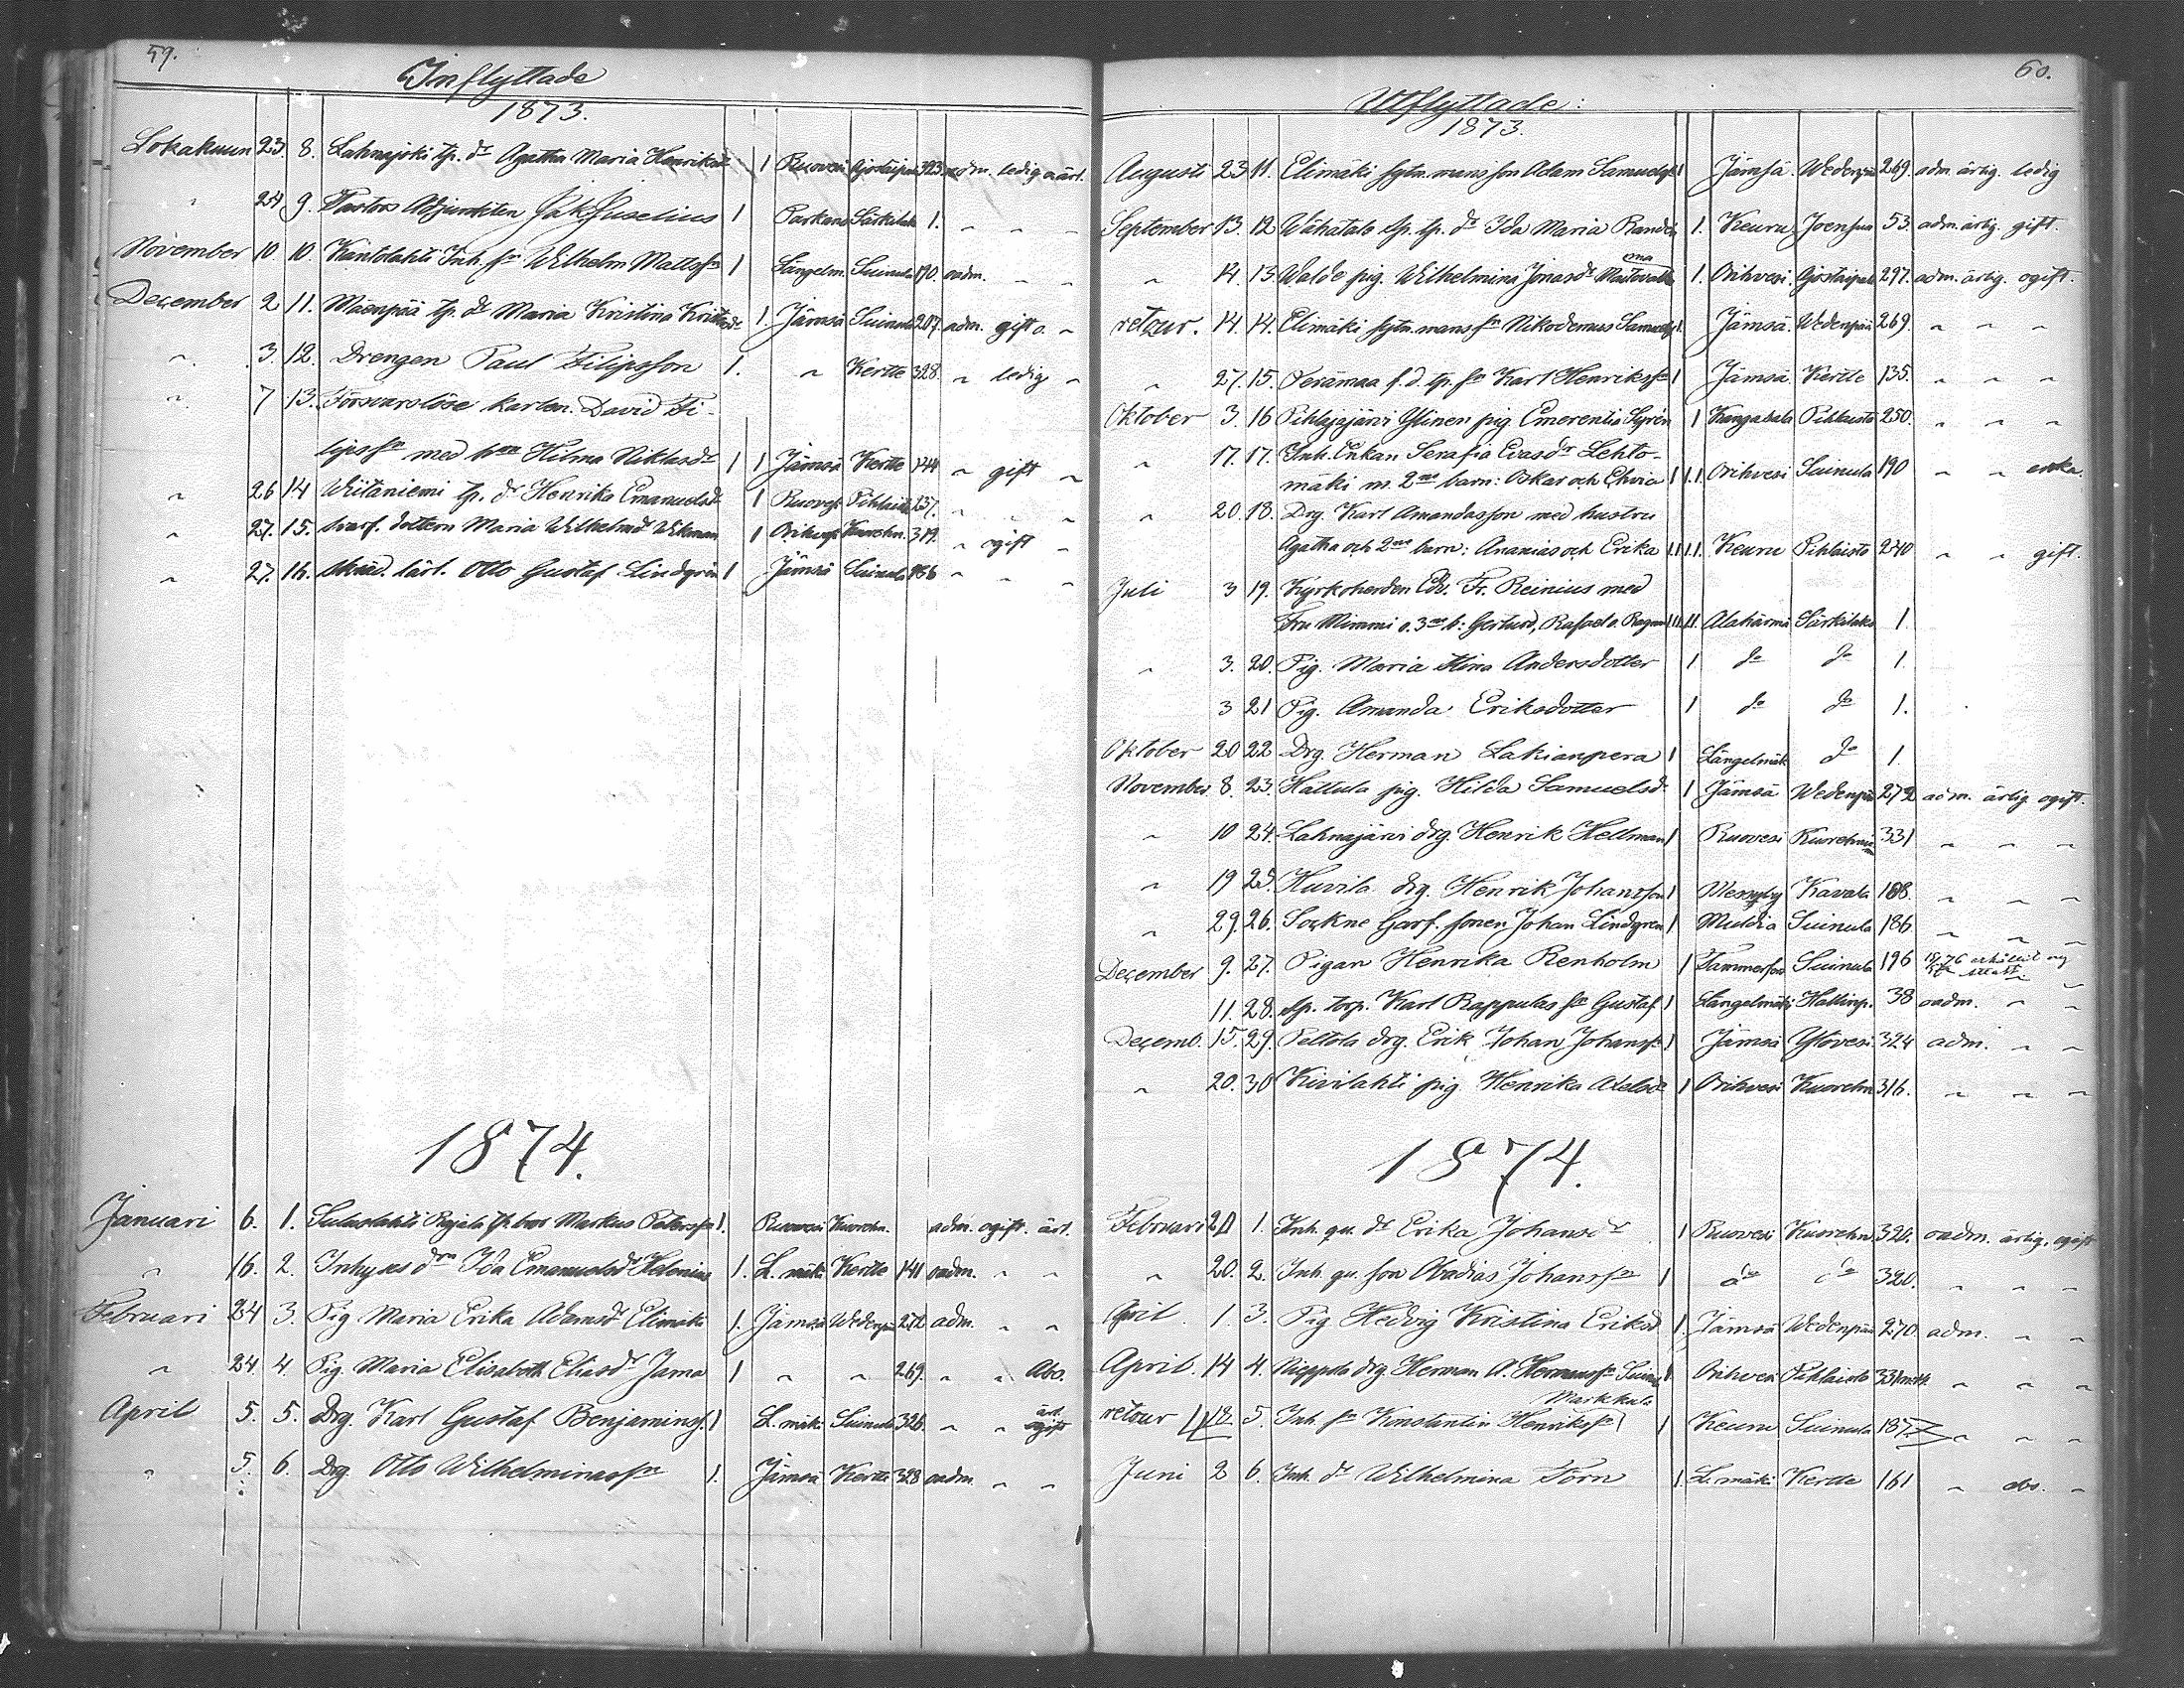 59.
Inflyttade
1873.
Lokakuun 23. 8. Lahnajoki tp. dr Agatha Maria Henriksdr 1 Ruovesi Ajostaipale 323. adm. ledig o ärl.
" 24 9. Pastors Adjunkten Jak Juselius 1 Parkano Särkilaks 1. " " "
November 10 10. Kantolahti Inh. sn Wilhelm Mattssn 1 Längelm. Suinula 190. oadm. " "
December 2 11. Mäenpää tp. dr Maria Kristina Kristiansdr 1. Jämsä Suinula 207. adm. gift o. "
" 3. 12. Drengen Paul Filipsson 1. " Kertte 328. " ledig "
" 7 13. Försvarslöse karlen David Fi-
lipssn med hon Hilma Niklasdr 1 1 Jämsä Kertte 144 " gift "
" 26 14 Wiitaniemi tp. dr Henrika Emanuelsdr 1 Ruovesi Pihlaisto 237. " " "
" 27. 15. Svarf. dottern Maria Wilhelmdr Wikman 1 Orihvesi Kuorehm. 319. " ogift "
" 27. 16. Skräd. lärl. Otto Gustaf Lindgrén 1 Jämsä Suinula 186 " " "
1874.
Januari 6. 1. Suluslahti Rajala tp. bror Markus Peterssn 1. Ruovesi Kuorehm. adm. ogift. ärl.
" 16. 2. Inhyses drn Ida Emanuelsdr Helenius 1. L. mäki Kertte 141 oadm. " "
Februari 24 3. Pig Maria Erika Adamsdr Elimäki 1. Jämsä Wedenpää 272 adm. " "
" 24. 4. Pig. Maria Elisabeth Eliasdr Jama 1 " " 269. " " Abs.
April 5. 5. Drg. Karl Gustaf Benjaminss. 1 L. mäki Suinula 326. " " ärl. ogift
" 5. 6. Drg. Otto Wilhelminassn 1. Jämsä Kertte 328 oadm. " "
60.
Utflyttade:
1873.
Augusti 23 11. Elimäki sytn. mans son Adam Samuelss 1 Jämsä Wedenpää 269. adm. ärlig. ledig
September 13. 12 Wähätalo sp. tp. dr Ida Maria Randén 1. Keuru Joensuu 53. adm. ärlig. gift.
" 14. 13. Walde pig. Wilhelmina Jonasdr 1. Orihvesi Ajostaipale 297. adm. ärlig. ogift.
retour. 14. 14. Elimäki sytn. mans sn Nikodemus Samuelss 1. Jämsä Wedenpää 269. " " "
" 27. 15. Perämaa f. d. tp. sn Karl Henrikssn 1 Jämsä Kertte 135. " " "
Oktober 3. 16 Pihlajajärvi Ylinen pig. Emerentia Syrén 1 Kangasala Pihlaisto 250. " " "
" 17. 17. Inh. Enkan Serafia Evasdr Lehto-
mäki m. 2ne barn: Oskar och Elvira 1 1.1 Orihvesi Suinula 190 " " enka.
" 20. 18. Drg. Karl Amandasson med hustru
Agatha och 2ne barn: Ananias och Erika 1.1 1.1. Keuru Pihlaisto 240 " " gift.
Juli 3 19. Kyrkoherden Edv. Fr. Reinius med
Fru Mimmi o. 3ne b: Gertrud, Rafael o. Alahärmä Särkilaks 1.
" 3. 20. Pig. Maria Stina Andersdotter 1 do do 1.
3 21 Pig. Amanda Eriksdotter 1 do do 1.
Oktober 20 22 Drg. Herman Lakianpera 1 Längelmäk do 1.
November 8. 23. Hattula pig. Hilda Samuelsdr 1 Jämsä Wedenpää 272 adm. ärlig ogift.
" 10 24. Lahnajärvi drg. Henrik Hellman 1 Ruovesi Kuorehmi 331 " " "
" 19 25. Huvila drg. Henrik Johansson 1 Messuby Kavala 188. " " "
" 29. 26. Sockne Garf. sonen Johan Lindgren 1 Multia Suinula 186 " " "
December 9. 27. Pigan Henrika Renholm 1 Tammerfors Suinula 196
11. 28. Sp. torp. Karl Rappulas sn Gustaf 1 Längelmäki Hallinp. 38 oadm. " "
Decemb. 15. 29. Peltola drg. Erik Johan Johanssn 1 Jämsä Ylövesi 324 adm. " "
" 20. 30 Kivilahti pig. Henrika Abelsdr 1 Orihvesi Kuorehm 316. " " "
1874.
Februari 20 1. Inh. qv. dr Erika Johansdr 1 Ruovesi Kuorehm. 320. oadm. ärlig. ogift
" 20. 2. Inh. qv. son Abadias Johanssn 1 do do 320. " " "
April 1. 3. Pig Hedvig Kristina Eriksd 1. Jämsä Wedenpää 270. adm. " "
April. 14 4. Nieppola drg. Herman A. Hermanssn 1. Orihvesi Pihlaisto " " "
Markkula
retour 12 5. Inh. sn Konstantin Henrikssn 1 Keuru Suinula 187 " " "
Juni 2 6. Inh. dr Wilhelmina Forn 1. L. mäki Kertte 161 " abs. "